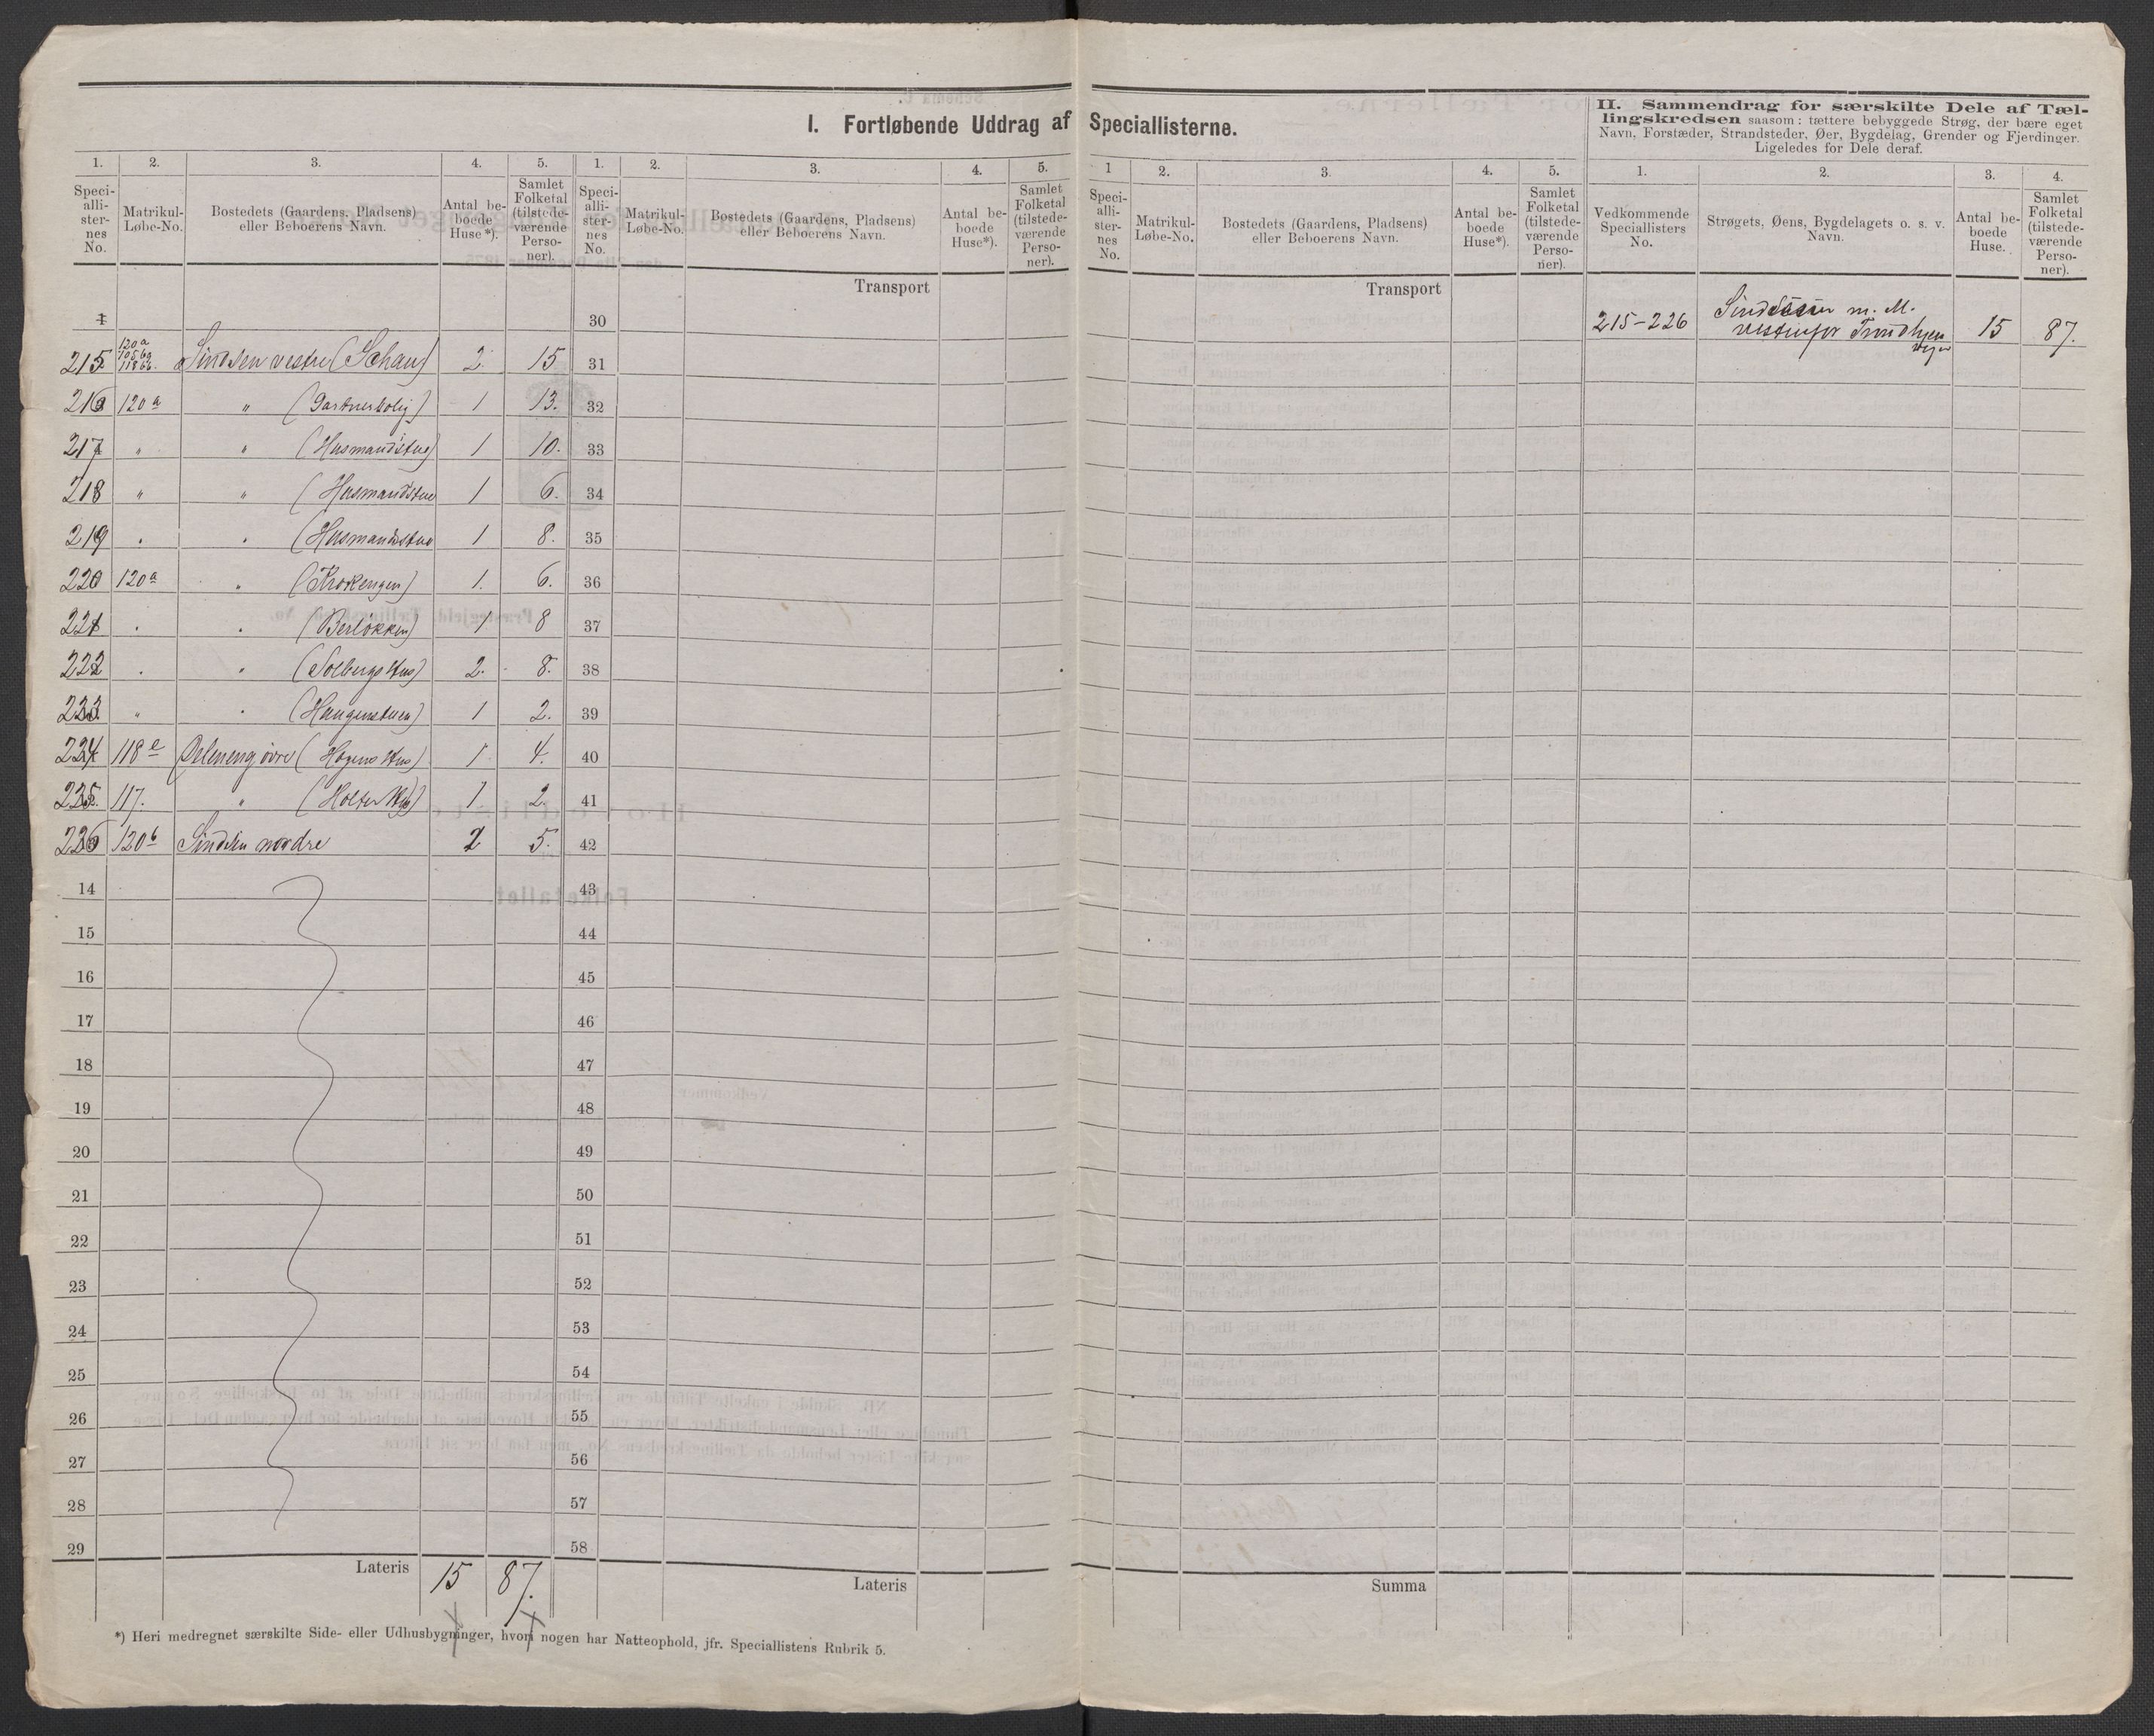 I. Fortløbende Uddrag af Speciallisterne.
II. Sammendrag for særskilte Dele af Tæl-
lingskredsen saasom: tættere bebyggede Strøg, der bære eget
Navn, Forstæder, Strandsteder, Øer, Bygdelag, Grender og Fjerdinger.
Ligeledes for Dele deraf.
1. 2. 3. 4. 5. 1. 2. 3. 4. 5. 1 2. 3. 4. 5. 1. 2. 3. 4.
Speci-alli-ster-nes No. Matrikul-Løbe-No. Bostedets (Gaardens, Pladsens) eller Beboerens Navn. Antal be-boede Huse*). Samlet Folketal (tilstede-værende Perso-ner).
Speci-alli-ster-nes No. Matrikul-Løbe-No. Bostedets (Gaardens, Pladsens) eller Beboerens Navn. Antal be-boede Huse*). Samlet Folketal (tilstede-værende Perso-ner).
Speci-alli-ster-nes No. Matrikul-Løbe-No. Bostedets (Gaardens, Pladsens) eller Beboerens Navn. Antal be-boede Huse*). Samlet Folketal (tilstede-værende Perso-ner).
Vedkommende Speciallisters No. Strøgets, Øens, Bygdelagets o. s. v. Navn. Antal be-boede Huse. Samlet Folketal (tilstede-værende Perso-ner).
Transport Transport
1 30 215-226 m. M. 15 87.
vestenfor
215 120a 118 Sindsen vestre (Schau) 2. 15 31
216 120a " (Gartnerbolig) 1 13. 32
217 " " (Husmandstue) 1 10. 33
218 " " (Husmandstue 1 6. 34
219 . . (Husmandstue 1 8. 35
220 120a " (Krokengen) 1. 6. 36
221 . . (Berløkken) 1 8 37
222 . " (Solbergs Hus) 2. 8. 38
223 " . (Haugenstuen) 1 2. 39
224 118e øvre (Hagens Hus) 1 4. 40
225. 117. " (Holter Hus) 1 2. 41
226 120b Sindsen nordre 2 5. 42
14 43
15 44
16 45
17 46
18 47
19 48
20 49
21 50
22 51
23 52
24 53
25 54
26 55
27 56
28 57
29 58
Lateris 15 87. Lateris Summa
*) Heri medregnet særskilte Side- eller Udhusbygninger, hvori nogen har Natteophold, jfr. Speciallistens Rubrik 5.